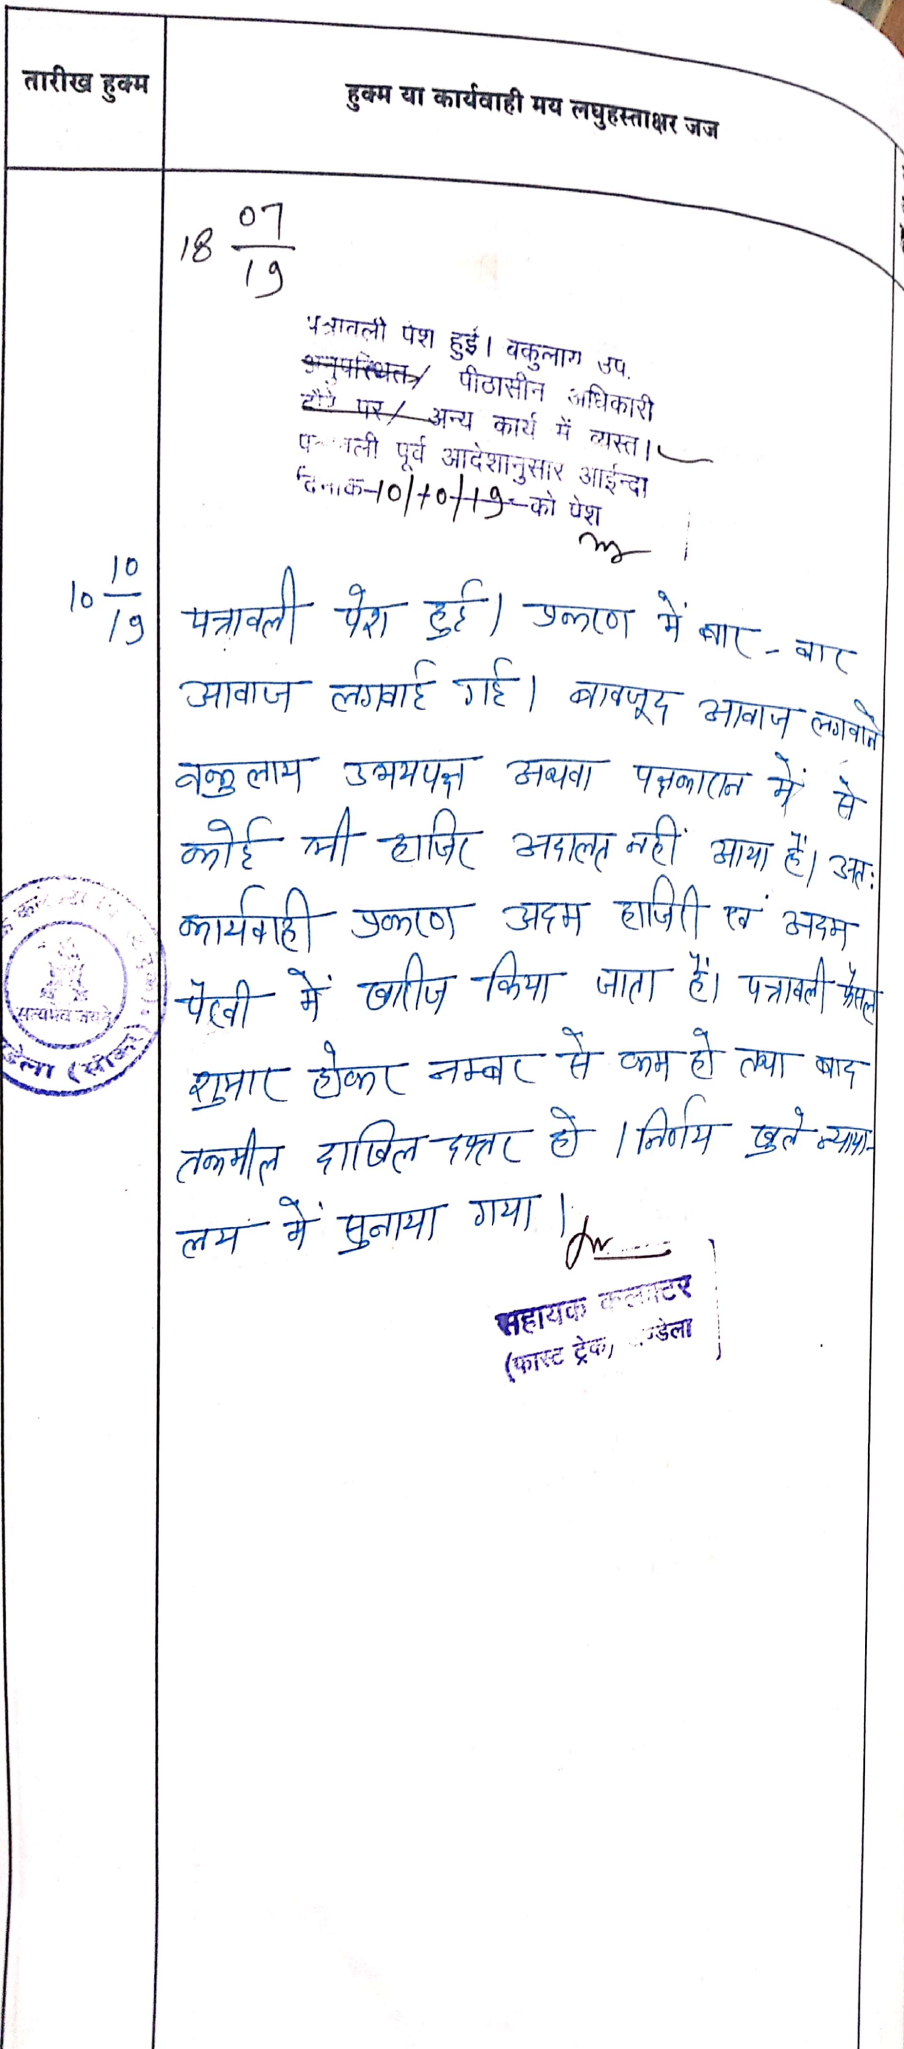 तारीख हुक्म
हुक्म या कार्यवाही मय लघुहस्ताक्षर जज
18 07/19
पत्रावली पेश हुई। वकुलाग उप.
अनुपस्थित/ पीठासीन अधिकारी
दौरे पर/ अन्य कार्य में व्यस्त।
पत्रावली पूर्व आदेशानुसार आईन्दा
दिनांक 10/10/19 को पेश
10 10/19
पत्रावली पेश हुई। प्रकरण में बार - बार
आवाज लगवाई गई। बावजूद आवाज लगवाने
वकुलाय उभयपक्ष अथवा पक्षकारान में से
कोई भी हाजिर अदालत नहीं आया हैं। अतः
कार्यवाही प्रकरण अदम हाजिरी एवं अदम
पेरवी में खारीज किया जाता हैं। पत्रावली फैसल
शुमार होकर नम्बर से कम हो तथा बाद
तकमील दाखिल दफ्तर हो । निर्णय खुले न्याया-
लय में सुनाया गया ।
सत्यमेव जयते
सहायक कलक्टर
(फास्ट ट्रेक)